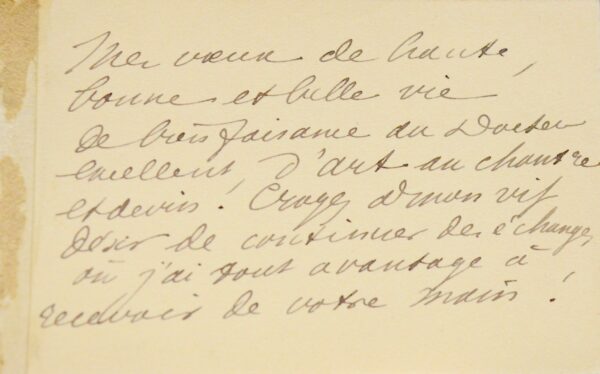 Mes vœux de haute,
bonne et belle vie
de bienfaisance au Docteur
excellent, d'art au chantre
et devin! Croyez à mon vif
désir de continuer des échanges
où j'ai tout avantage à
recevoir de votre main!